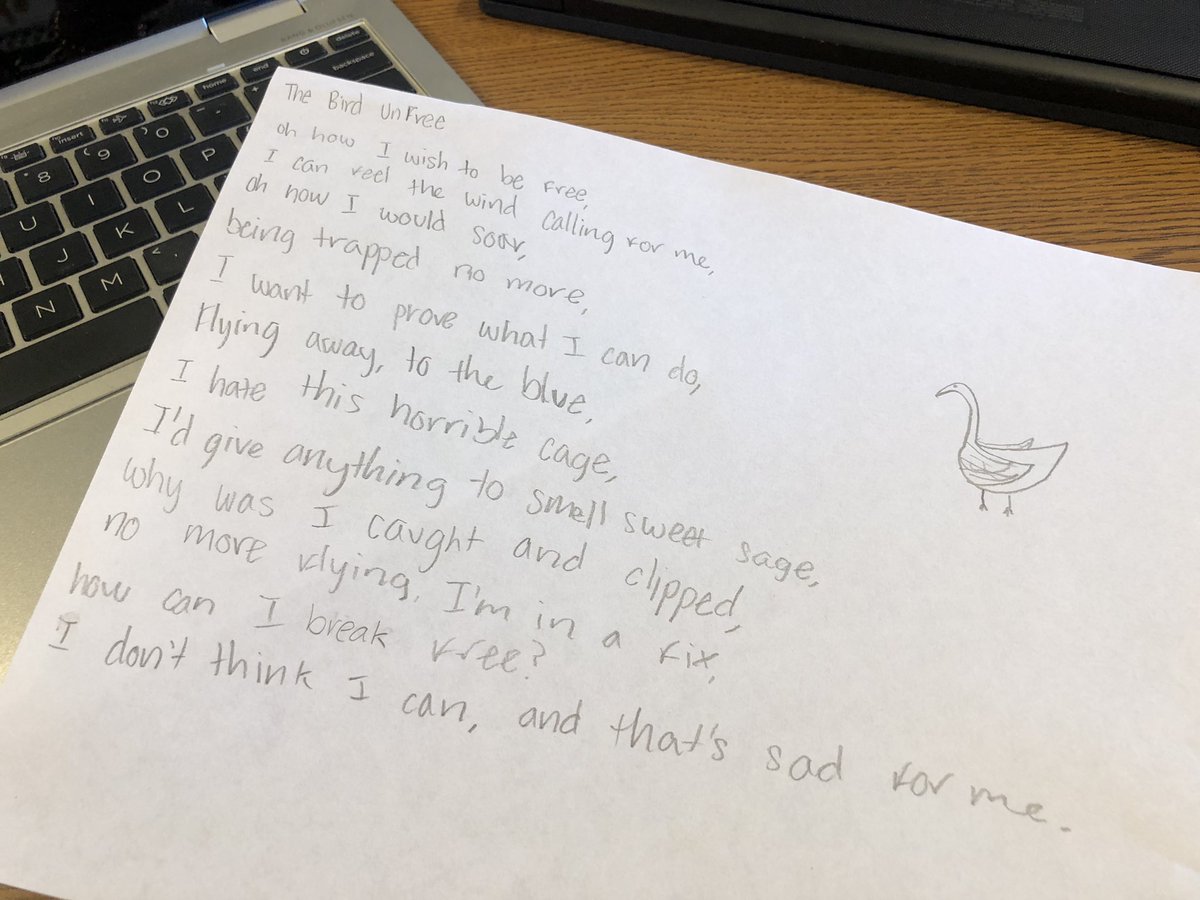 The Bird UnFree
oh how I wish to be free,
I can feel the wind calling for me,
oh how I would soar,
being trapped no more,
I want to prove what I can do,
Flying away, to the blue,
I hate this horrible cage,
I'd give anything to smell sweet sage,
why was I caught and clipped,
no more flying, I'm in a fix,
how can I break free?
I don't think I can, and that's sad for me.
BANG & OLUFSEN
delete
backspace
home
end
insert
8
9
O
P
U
I
O
J
K
L
N
M